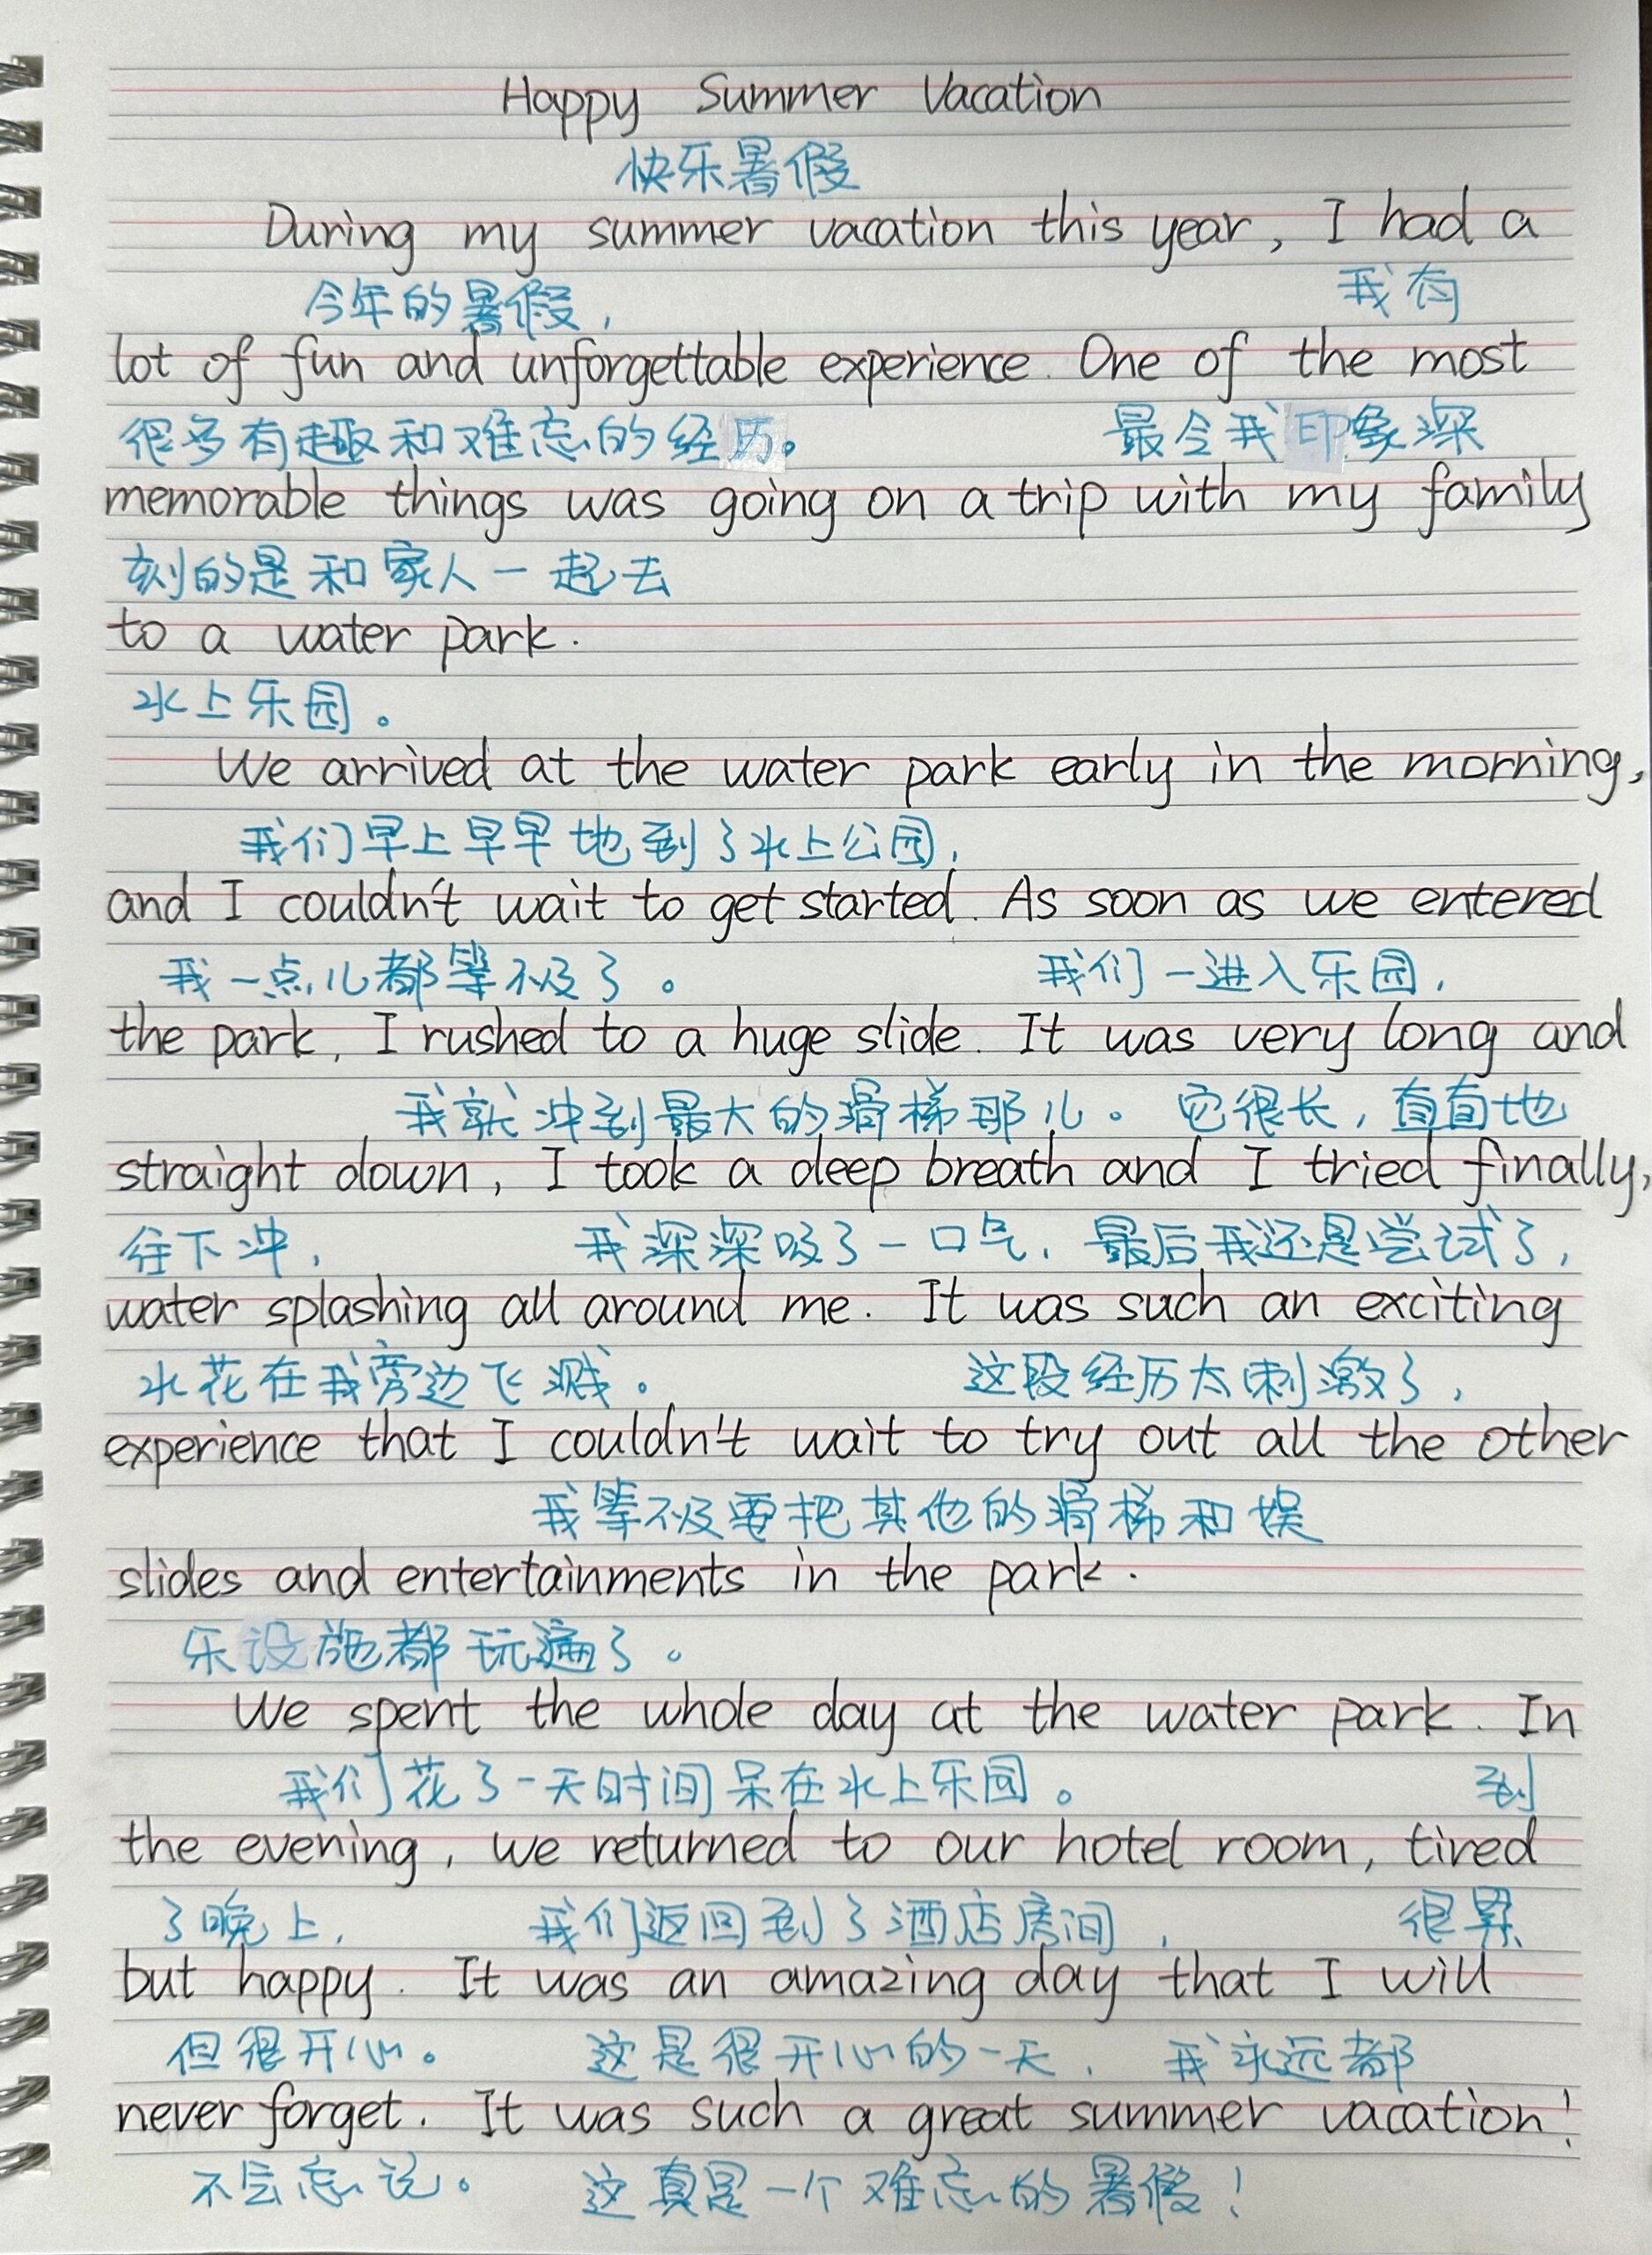 Happy Summer Vacation
快乐暑假
During my summer vacation this year, I had a
今年的暑假, 我有
lot of fun and unforgettable experience. One of the most
很多有趣和难忘的经历。 最令我印象深
memorable things was going on a trip with my family
刻的是和家人一起去
to a water park.
水上乐园。
We arrived at the water park early in the morning,
我们早上早早地到了水上公园,
and I couldn't wait to get started. As soon as we entered
我一点儿都等不及了。 我们一进入乐园,
the park, I rushed to a huge slide. It was very long and
我就冲到最大的滑梯那儿。 它很长, 直直地
straight down, I took a deep breath and I tried finally,
往下冲, 我深深吸了一口气, 最后我还是尝试了,
water splashing all around me. It was such an exciting
水花在我旁边飞溅。 这段经历太刺激了,
experience that I couldn't wait to try out all the other
我等不及要把其他的滑梯和娱
slides and entertainments in the park.
乐设施都玩遍了。
We spent the whole day at the water park. In
我们花了一天时间呆在水上乐园。 到
the evening, we returned to our hotel room, tired
了晚上, 我们返回到了酒店房间, 很累
but happy. It was an amazing day that I will
但很开心。 这是很开心的一天, 我永远都
never forget. It was such a great summer vacation!
不会忘记。 这真是一个难忘的暑假!